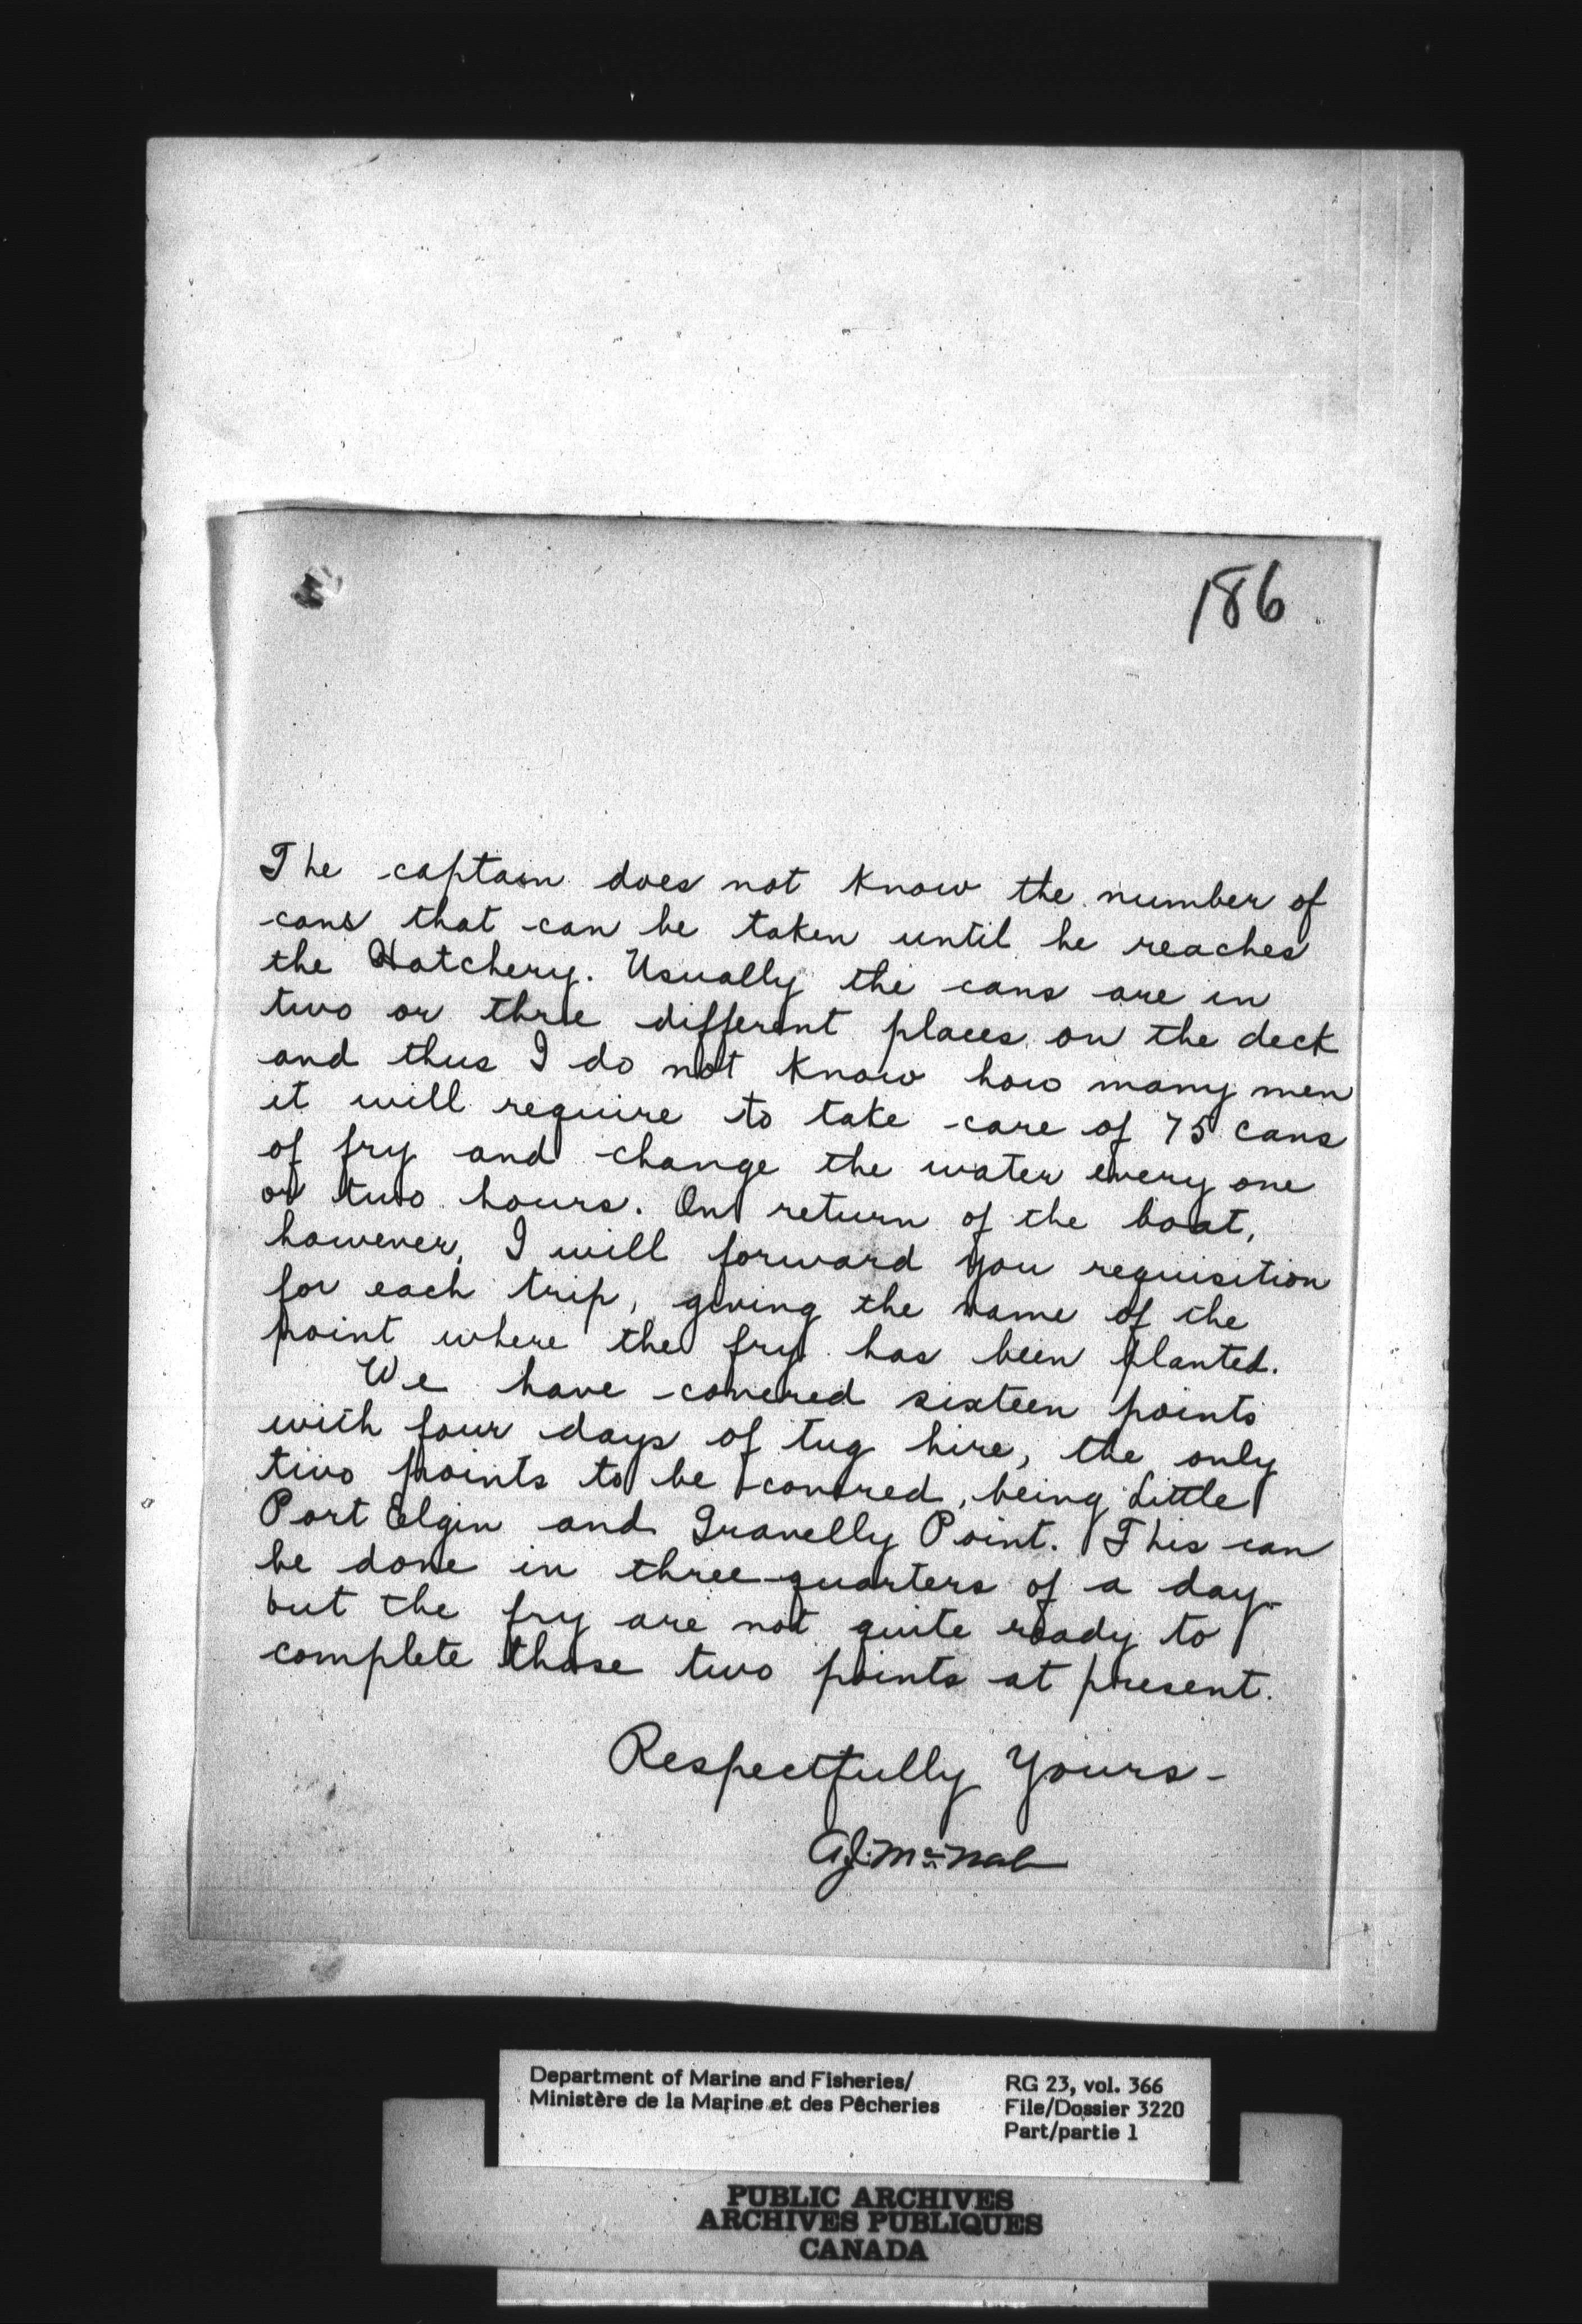 186
The captain does not know the number of
cans that can be taken until he reaches
the Hatchery. Usually the cans are in
two or three different places on the deck
and thus I do not know how many men
it will require to take care of 75 cans
of fry and change the water every one
or two hours. On return of the boat,
however, I will forward you requisition
for each trip, giving the name of the
point where the fry has been planted.
We have covered sixteen points
with four days of tug hire, the only
two points to be covered, being Little
Port Elgin and Gravelly Point. This can
be done in three-quarters of a day
but the fry are not quite ready to
complete those two points at present.
Respectfully Yours-
A.J. McNab
Department of Marine and Fisheries/
Ministère de la Marine et des Pêcheries
RG 23, vol. 366
File/Dossier 3220
Part/partie 1
PUBLIC ARCHIVES
ARCHIVES PUBLIQUES
CANADA